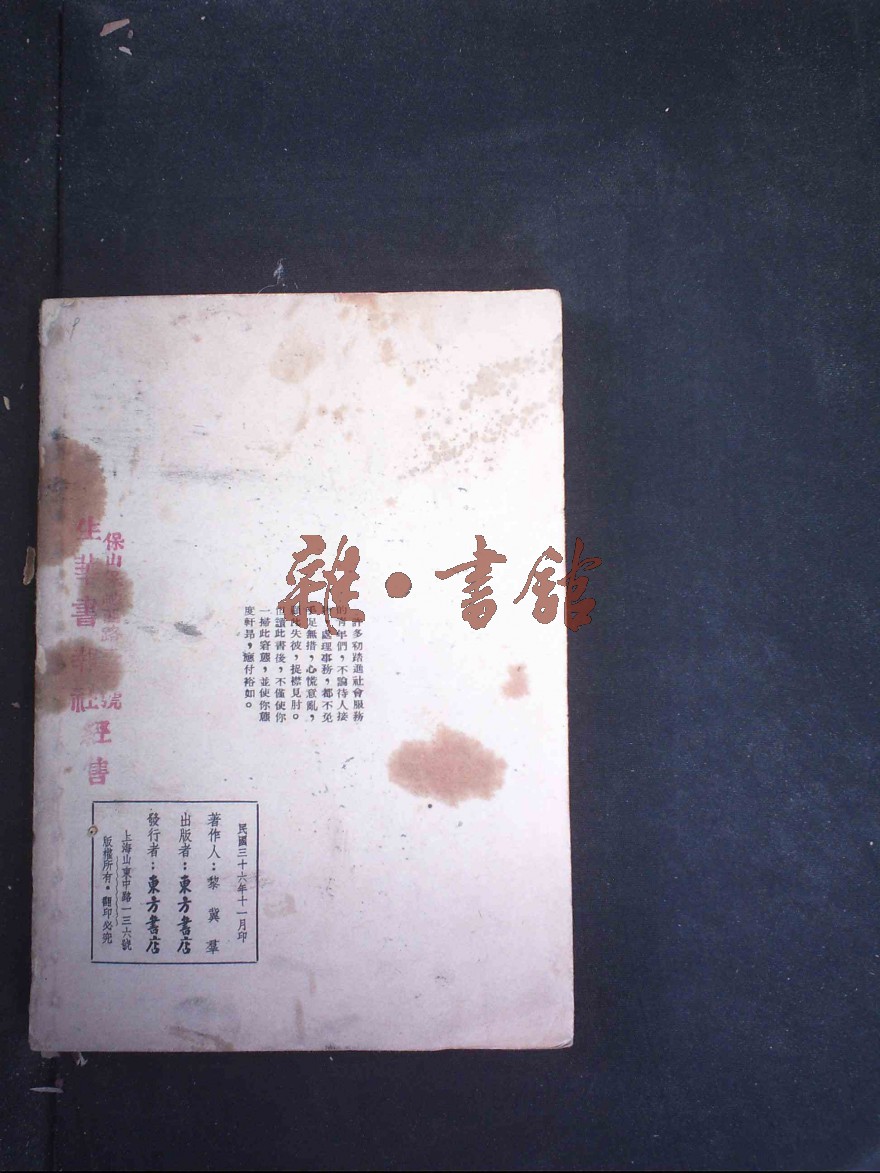 雜·書館
許多初踏進社會服務
的青年們，不論待人接
處理事務，都不免
手足無措，心慌意亂，
顧此失彼，捉襟見肘。
但讀此書後，不僅使你
一掃此窘態，並使你態
度軒昂，應付裕如。
保山
路
號
生華書報社
經售
民國三十六年十一月印
著作人：黎冀羣
出版者：東方書店
發行者：東方書店
上海山東中路一三六號
版權所有·翻印必究